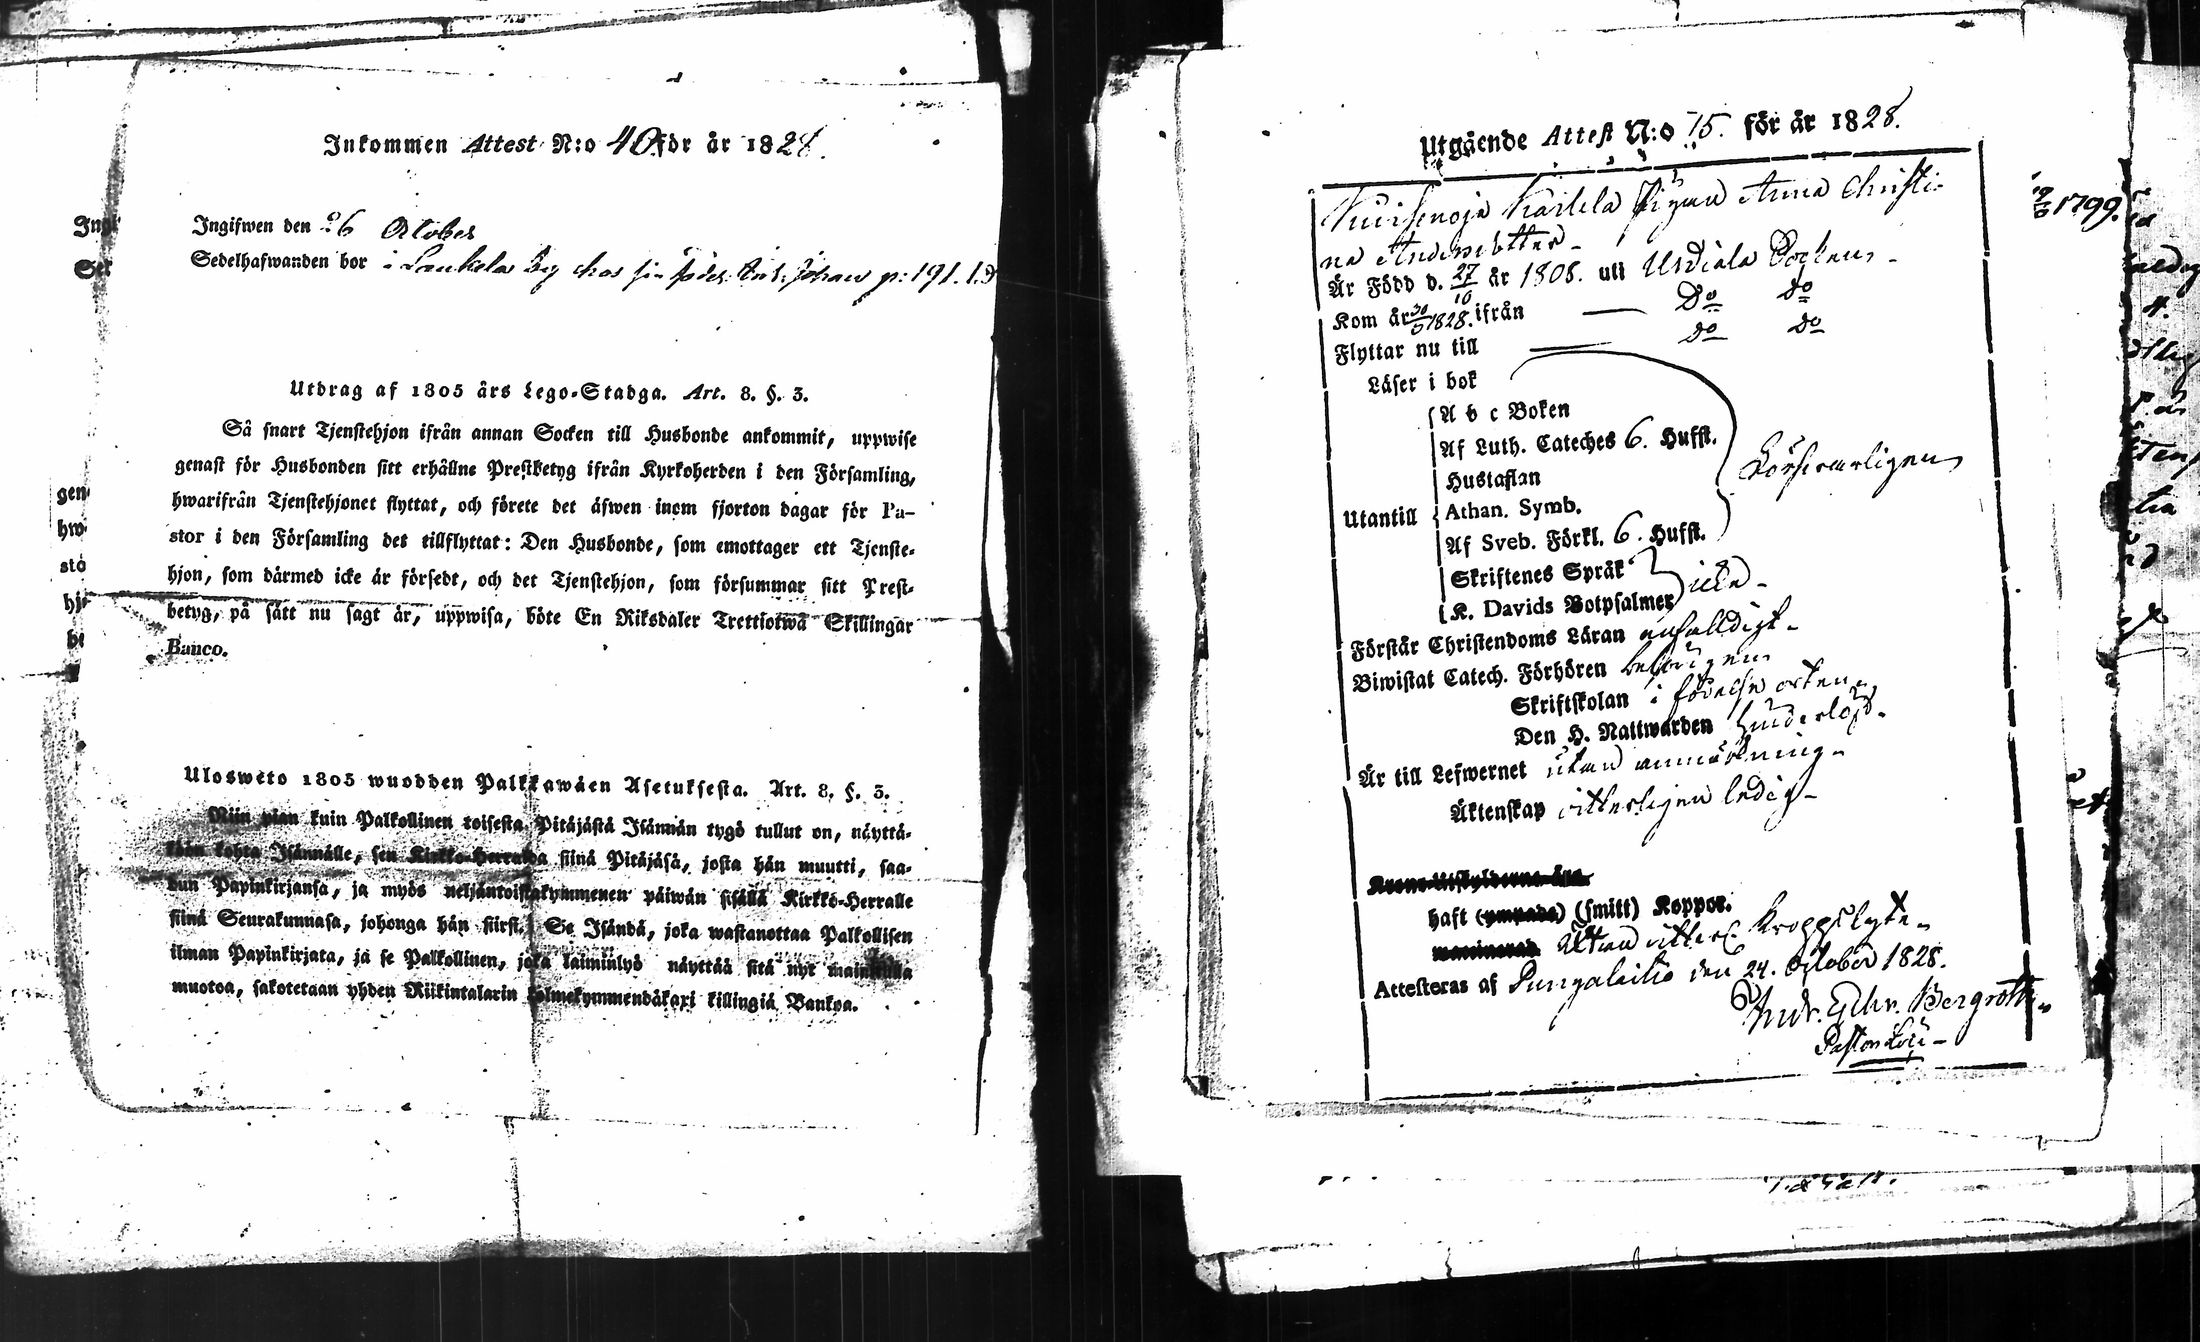 Inkommen Attest N:o 40. för år 1828.
Ingifwen den 26 October
Sedelhafwanden bor i Laukela by hos sin p: 191.
Utdrag af 1805 års Lego-Stadga. Art. 8. §. 3.
Så snart Tjenstehjon ifrån annan Socken till Husbonde ankommit, uppwise
genast för Husbonden sitt erhållne Prestbetyg ifrån Kyrkoherden i den Församling,
hwarifrån Tjenstehjonet flyttat, och förete det äfwen inom fjorton dagar för Pa-
stor i den Församling det tillflyttat: Den Husbonde, som emottager ett Tjenste-
hjon, som därmed icke är försedt, och det Tjenstehjon, som försummar sitt Prest-
betyg, på sätt nu sagt är, uppwisa, böte En Riksdaler Trettiotwå Skillingar
Banco.
Uloswēto 1805 wuodden Palkkawäen Asetuksesta. Art. 8. §. 3.
Niin pian kuin Palkollinen toisesta Pitäjästä Isännän tygö tullut on, näyttä-
kään kohta Isännälle, sen Kirkko-Herralda siinä Pitäjäsä, josta hän muutti, saa-
dun Papinkirjansa, ja myös neljäntoistakymmenen päiwän sisällä Kirkko-Herralle
siinä Seurakunnasa, johonga hän siirst. Se Isändä, joka wastanottaa Palkollisen
ilman Papinkirjata, ja se Palkollinen, joka laiminlyö näyttää sitä nyt mainitulla
muotoa, sakotetaan yhden Riikintalarin kolmekymmendäkaxi killingiä Bankoa.
Utgående Attest N:o 75. för år 1828.
Karlela Pigan Anna Christi-
na Andersdotter
Är Född d. 27/10 år 1808. uti Urdiala Socken
Kom år 1828. ifrån — Do Do
Flyttar nu till — do do
Läser i bok
A b c Boken
Af Luth. Cateches 6. Hufst.
Hustaflan
Utantill Athan. Symb.
Af Sveb. Förkl. 6. Hufst.
Försvarligen
Skriftenes Språk
K. Davids Botpsalmer icke
Förstår Christendoms Läran enfalldigt
Biwistat Catech. Förhören behörigen
Skriftskolan i födelse orten
Den H. Nattwarden hinderlöst
Är till Lefwernet utan anmärkning
Äktenskap witterligen ledig
Krono-Utskylderna äga
haft (ympade) (smitt) Koppor.
utan witterl. kroppslyte
Attesteras af Pungalaitio den 24. October 1828.
Andr. Gthr. Bergroth
1799.